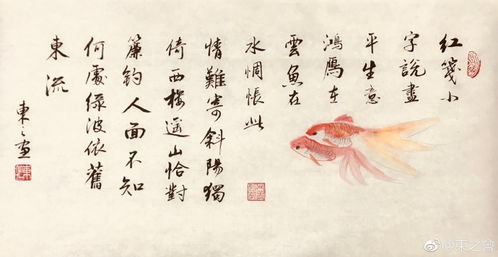 紅箋小
字說盡
平生意
鴻鴈在
雲魚在
水惆悵此
情難寄斜陽獨
倚西樓遥山恰對
簾鈎人面不知
何處緑波依舊
東流
東之畫
@東之會